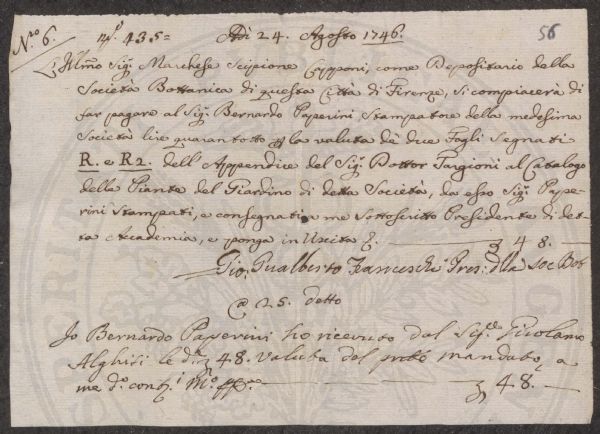 N.ro 6.
n.o 135=
Adi 24. Agosto 1746.
56
L'Illmo Sig.r Marchese Scipione Capponi, come Depositario della
Società Bottanica di questa Città di Firenze, si compiacerà di
far pagare al Sig.r Bernardo Paperini Stampatore della medesima
Società lire quarantotto p la valuta de due Fogli segnati
R. e R2. dell'Appendice del Sig.r Dottor Targioni al Catalogo
delle Piante del Giardino di detta Società, da esso Sig.r Pape-
rini Stampati, e consegnati a me Sottoscritto Presidente di det-
ta Academia, e ponga in Uscita 48.
Gio: Gualberto Franceschi Pres: dlla Soc Bot
@ 25. detto
Jo Bernardo Paperini ho ricevuto dal Sig.re Girolamo
Alghisi le d.e 48. valuta del pnte mandato, a
me d.o cont.i M.o pp.ra
48.